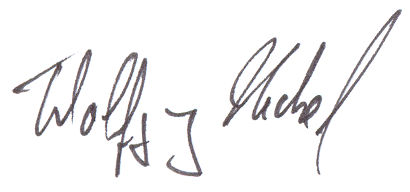 Wolfgang Michel